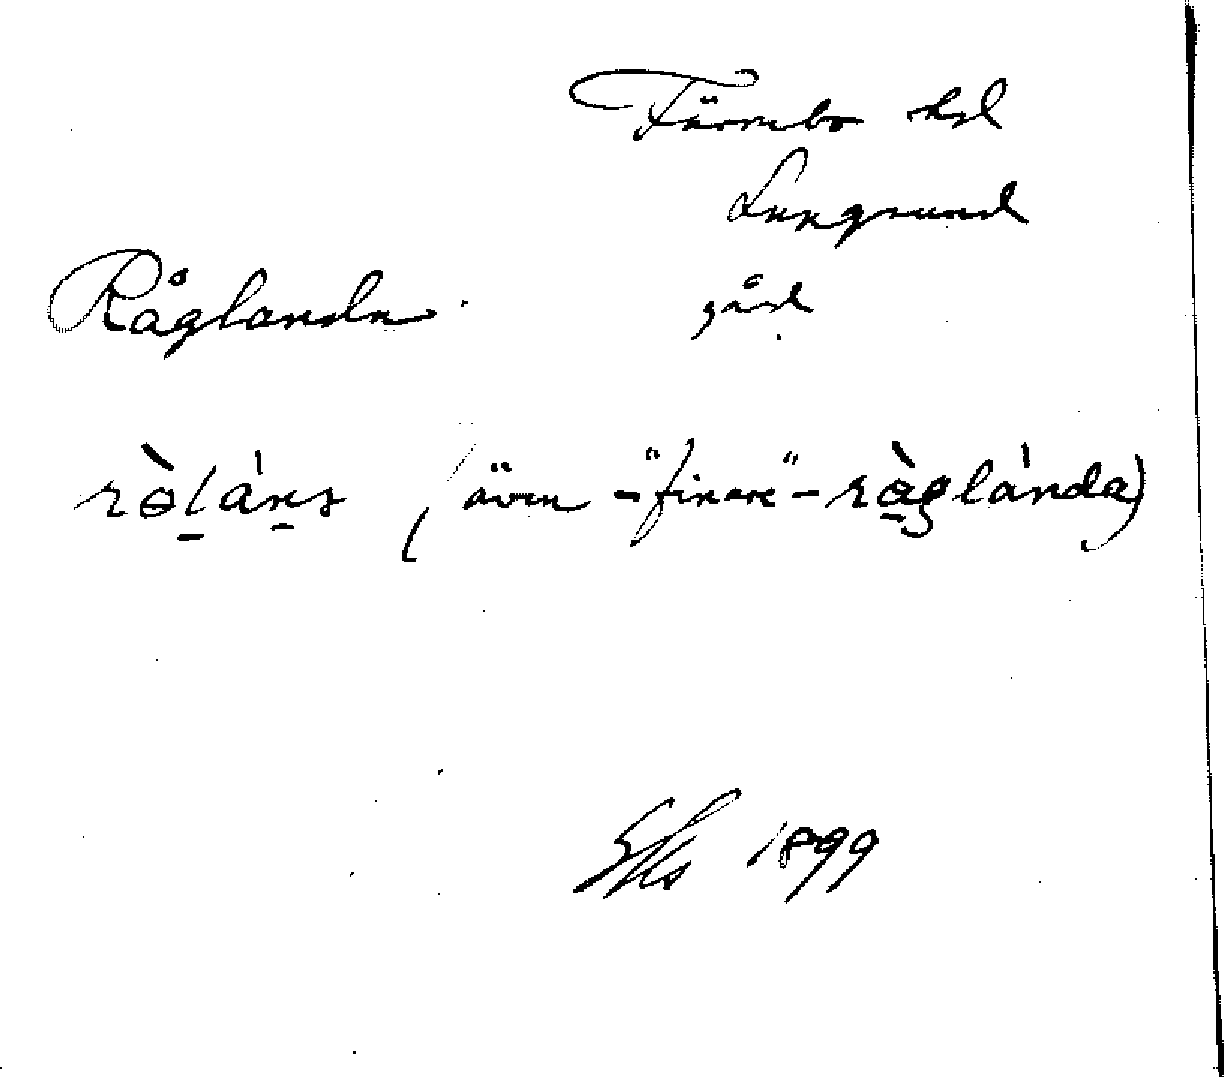 Färnebo hd
Lungsund
Råglanda. gård
ròláns (även -"finare"- ràglánda)
1899